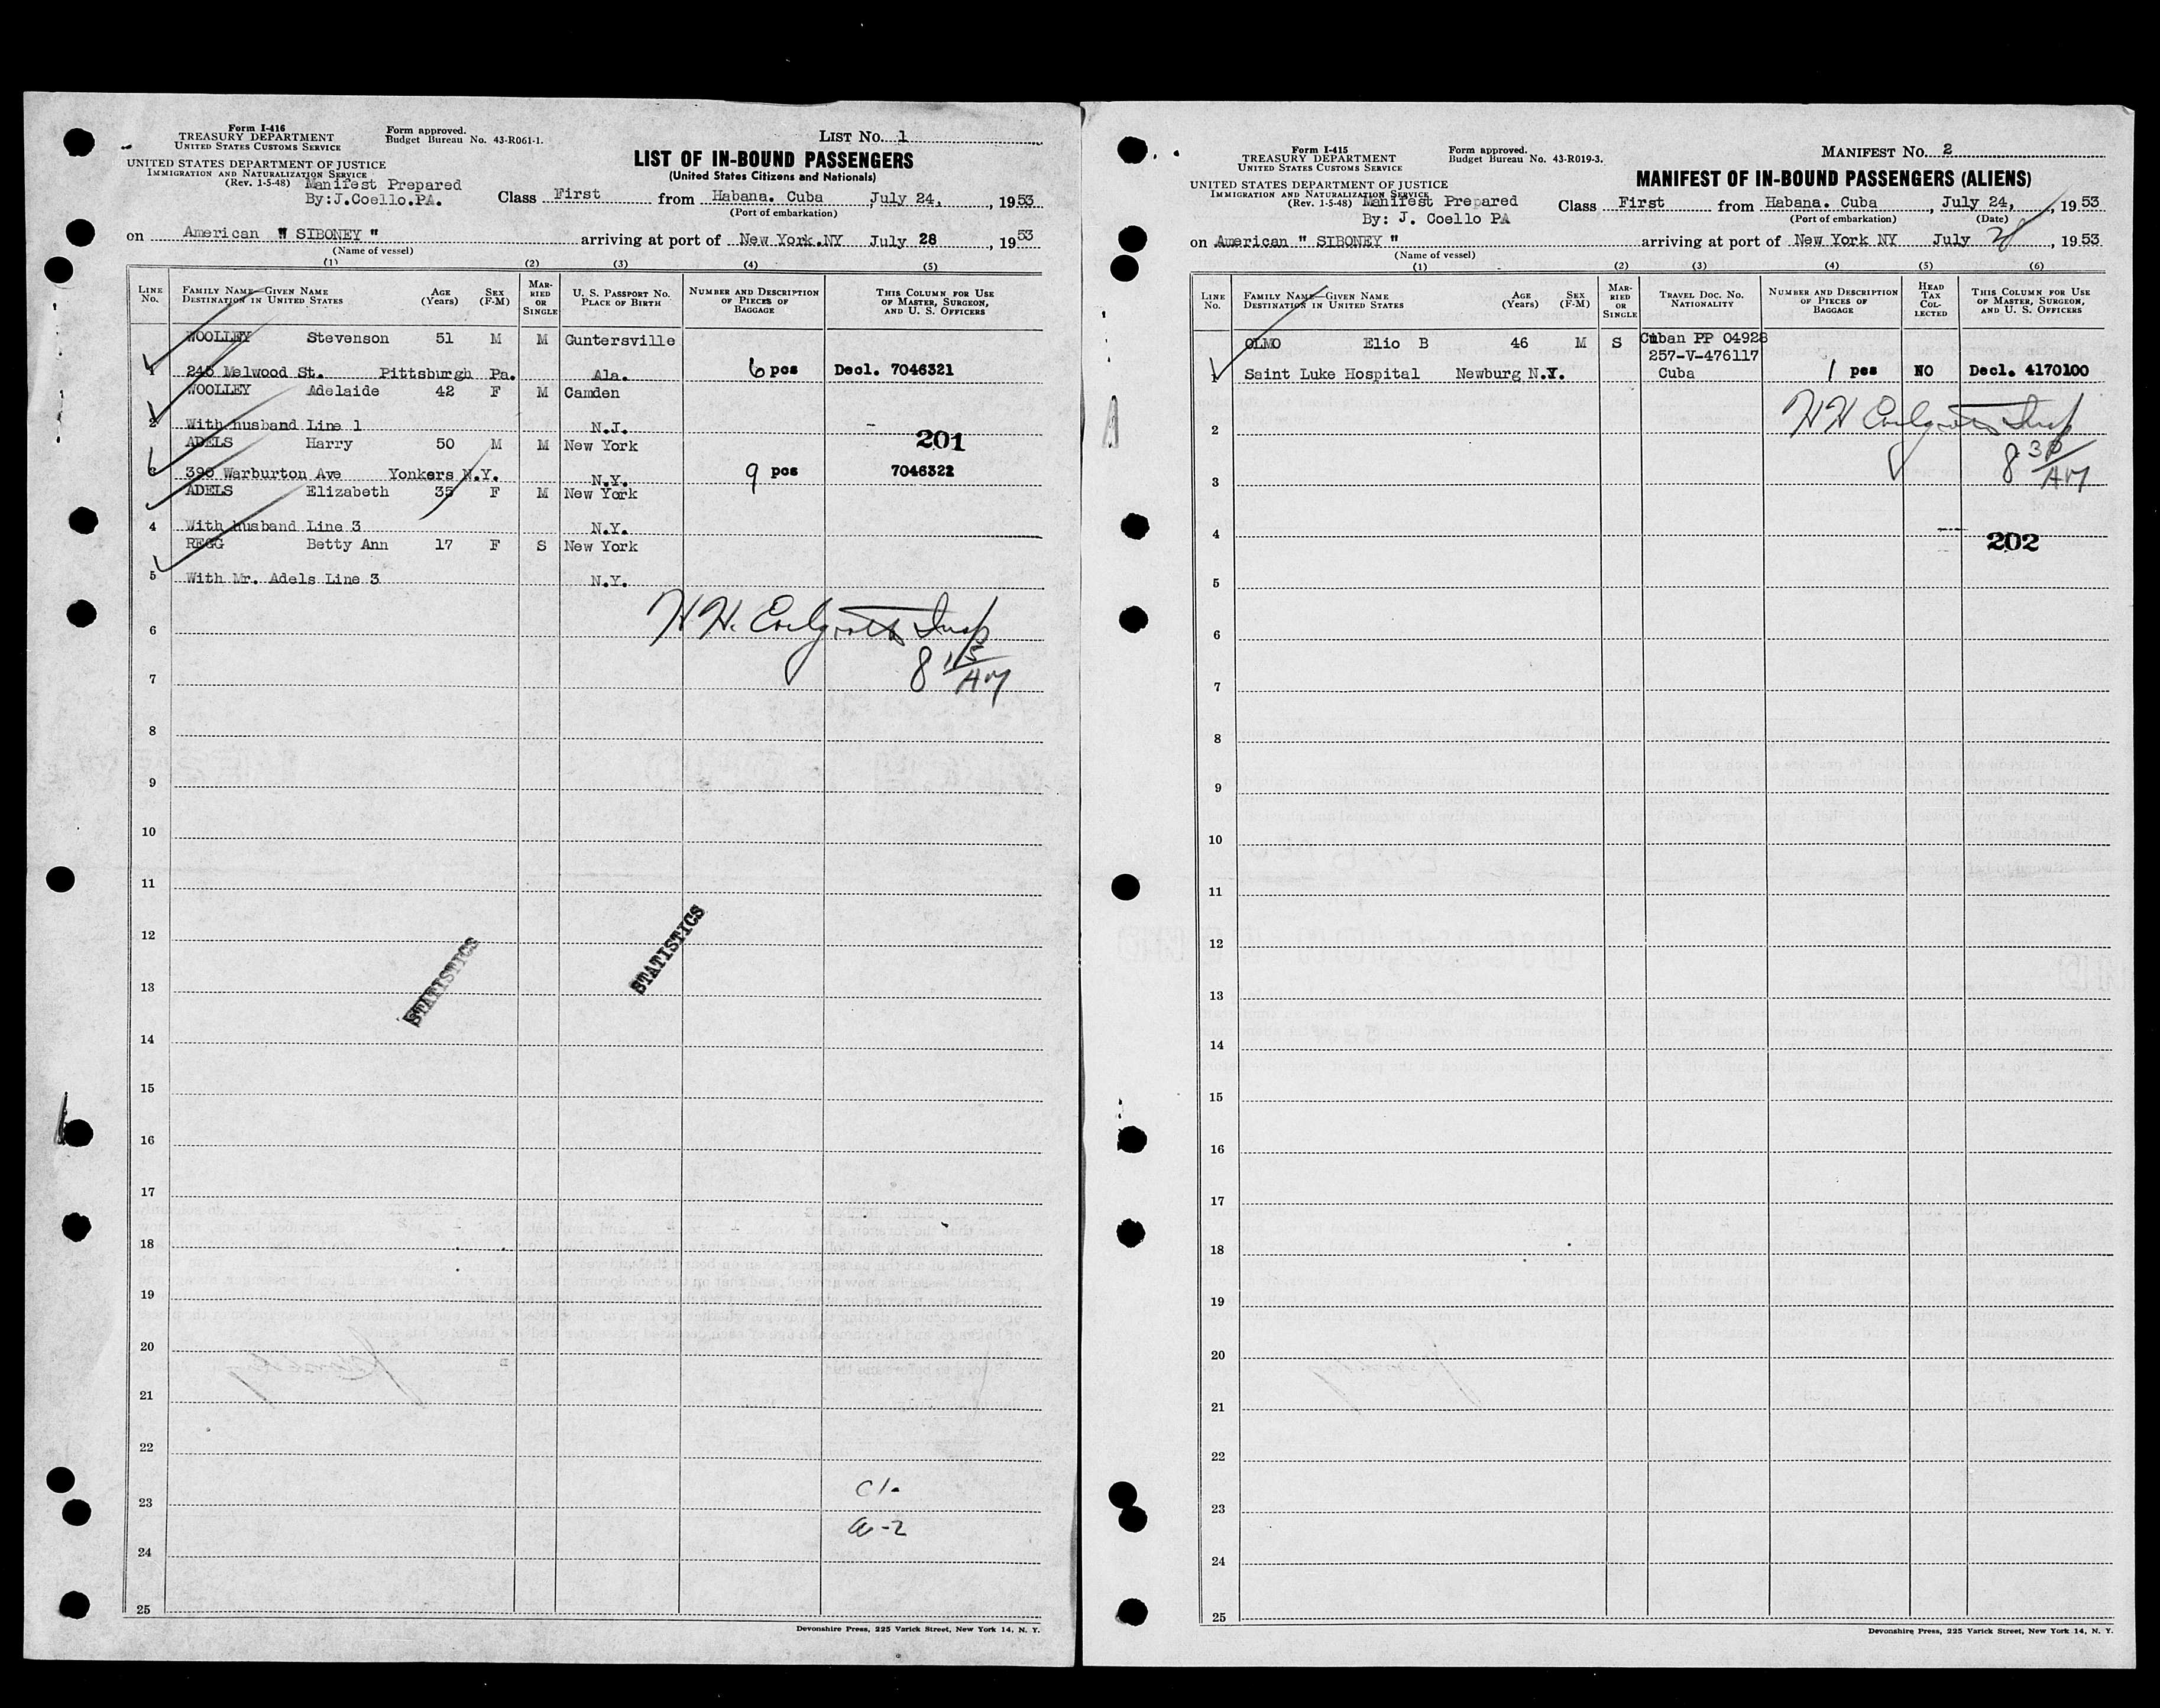 Form I-416
TREASURY DEPARTMENT
UNITED STATES CUSTOMS SERVICE
Form approved.
Budget Bureau No. 43-R061-1.
LIST NO. 1
UNITED STATES DEPARTMENT OF JUSTICE
IMMIGRATION AND NATURALIZATION SERVICE
(Rev. 1-5-48) Manifest Prepared
By:J.Coello.PA.
LIST OF IN-BOUND PASSENGERS
(United States Citizens and Nationals)
Class First from Habana. Cuba July 24, , 1953
(Port of embarkation)
on American " SIBONEY " arriving at port of New York.NY July 28 , 1953
(Name of vessel)
(1) (2) (3) (4) (5)
LINE NO. FAMILY NAME—GIVEN NAME DESTINATION IN UNITED STATES AGE (Years) SEX (F-M) MARRIED OR SINGLE U. S. PASSPORT NO. PLACE OF BIRTH NUMBER AND DESCRIPTION OF PIECES OF BAGGAGE THIS COLUMN FOR USE OF MASTER, SURGEON, AND U. S. OFFICERS
WOOLLEY Stevenson 51 M M Guntersville
1 245 Melwood St. Pittsburgh Pa. Ala. 6 pcs Decl. 7046321
WOOLLEY Adelaide 42 F M Camden
2 With husband Line 1 N.J.
201
ADELS Harry 50 M M New York
3 390 Warburton Ave Yonkers N.Y. N.Y. 9 pcs 7046322
ADELS Elizabeth 35 F M New York
4 With husband Line 3 N.Y.
REGG Betty Ann 17 F S New York
5 With Mr. Adels Line 3 N.Y.
6 H H. Insp
7 8 15 AM
8
9
10
11
12
13
STATISTICS STATISTICS
14
15
16
17
18
19
20
21
22
23 c 1-
24 a-2
25
Devonshire Press, 225 Varick Street, New York 14, N. Y.
Form I-415
TREASURY DEPARTMENT
UNITED STATES CUSTOMS SERVICE
Form approved.
Budget Bureau No. 43-R019-3.
MANIFEST NO. 2
UNITED STATES DEPARTMENT OF JUSTICE
IMMIGRATION AND NATURALIZATION SERVICE
(Rev. 1-5-48) Manifest Prepared
By: J. Coello PA
MANIFEST OF IN-BOUND PASSENGERS (ALIENS)
Class First from Habana. Cuba , July 24, , 1953
(Port of embarkation) (Date)
on American " SIBONEY " arriving at port of New York NY July 28 , 1953
(Name of vessel)
(1) (2) (3) (4) (5) (6)
LINE NO. FAMILY NAME—GIVEN NAME DESTINATION IN UNITED STATES AGE (Years) SEX (F-M) MARRIED OR SINGLE TRAVEL DOC. NO. NATIONALITY NUMBER AND DESCRIPTION OF PIECES OF BAGGAGE HEAD TAX COLLECTED THIS COLUMN FOR USE OF MASTER, SURGEON, AND U. S. OFFICERS
OLMO Elio B 46 M S Cuban PP 04928
257-V-476117
1 Saint Luke Hospital Newburg N.Y. Cuba 1 pcs NO Decl. 4170100
2 H H Insp
3 8 30 AM
4 202
5
6
7
8
9
10
11
12
13
14
15
16
17
18
19
20
21
22
23
24
25
Devonshire Press, 225 Varick Street, New York 14, N. Y.